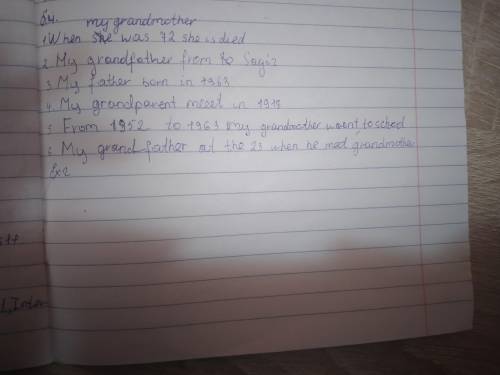 my grandmother
1. When she was 72 she is died
2. My grandfather from to Sagiz
3. My father born in 1963
4. My grandparent meet in
5. From 1952 to 1963 my grandmother went to school
6. My grand father at the 23 when he met grandmother
Ex 2